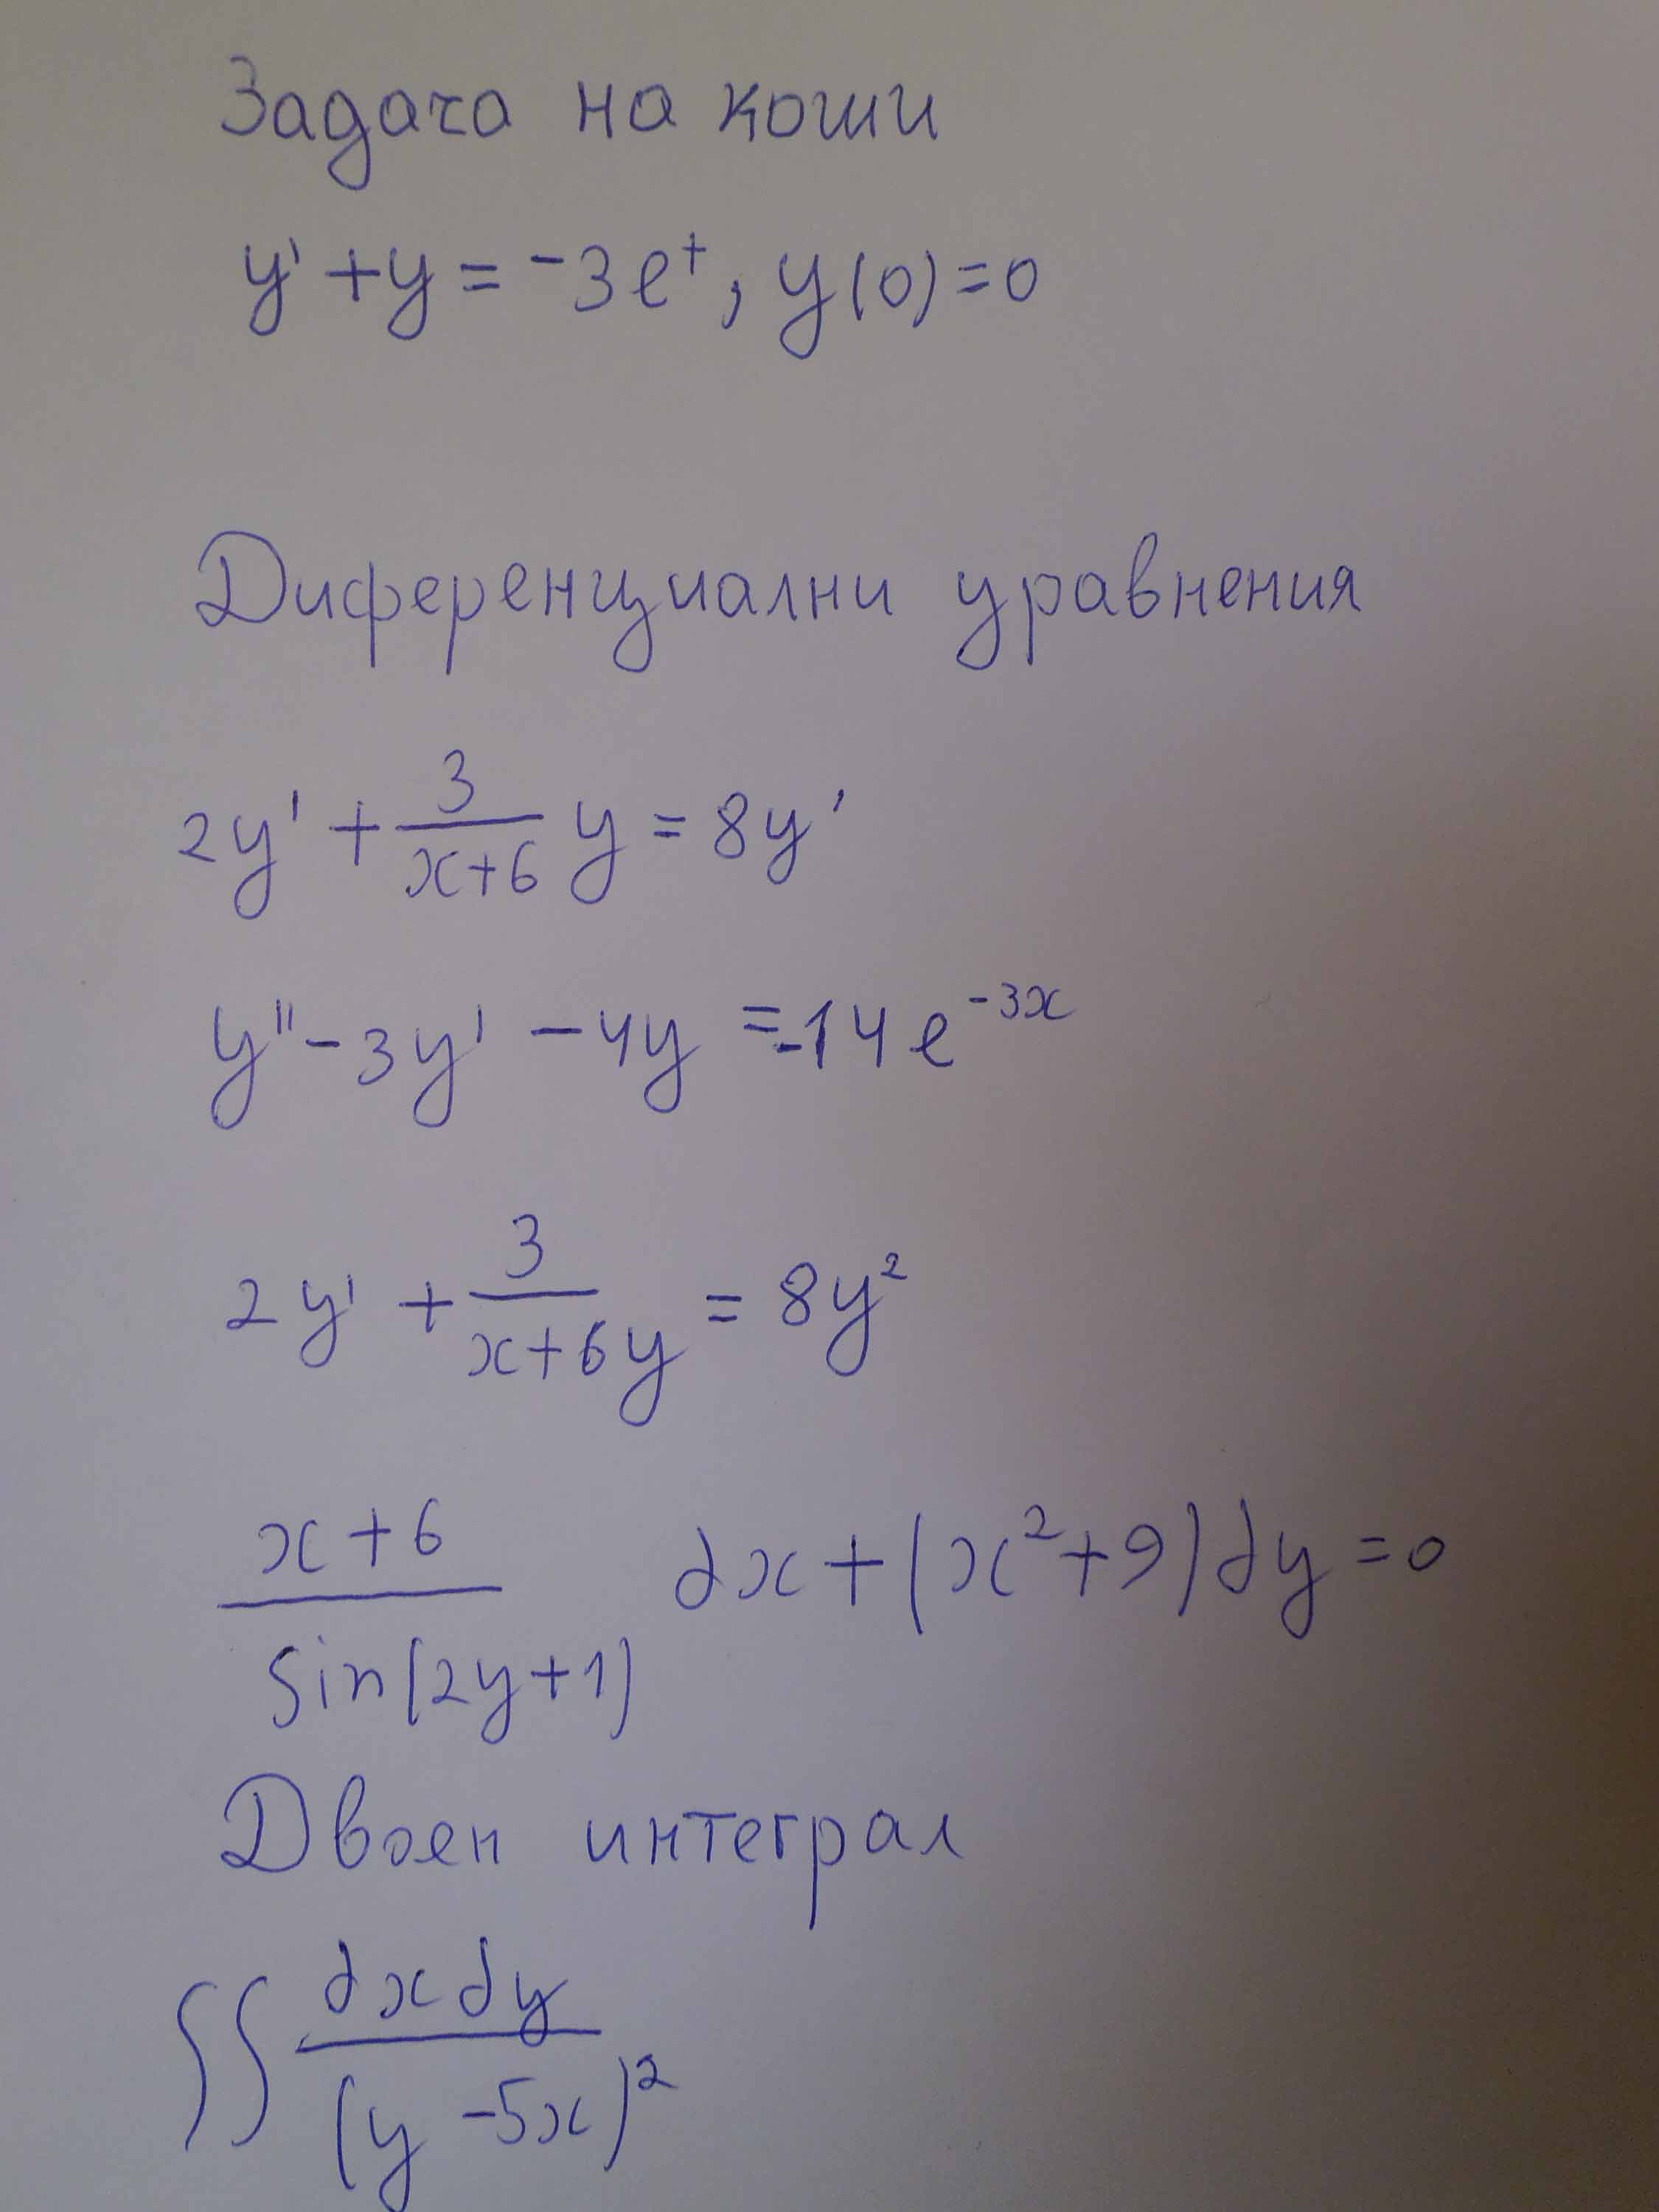 Задача на коши
y' + y = -3e^t, y(0)=0
Диференциални уравнения
2y' + \frac{3}{x+6} y = 8y'
y'' - 3y' - 4y = -14e^{-3x}
2y' + \frac{3}{x+6y} = 8y^2
\frac{x+6}{sin(2y+1)} dx + (x^2+9)dy = 0
Двоен интеграл
∬ \frac{dxdy}{(y-5x)^2}